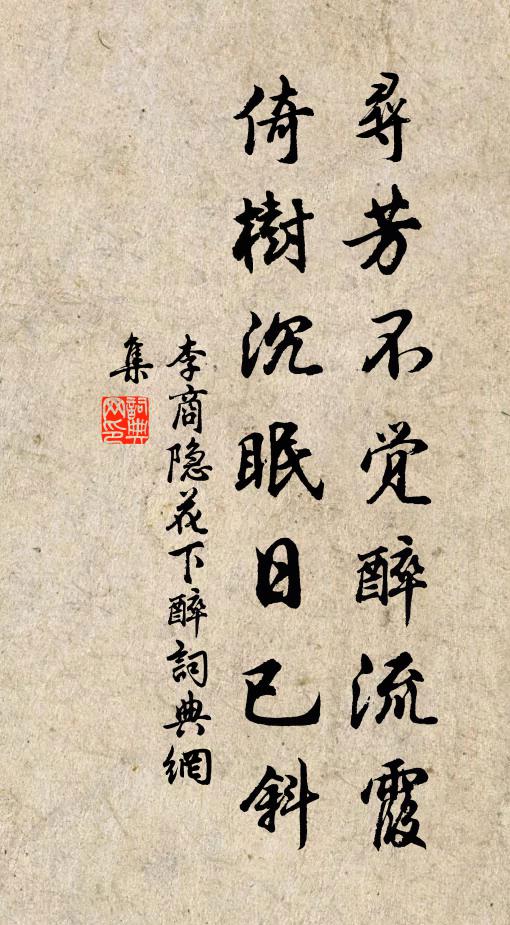 尋芳不觉醉流霞
倚樹沉眠日已斜
李商隐花下醉詞典網
集
詞典网印